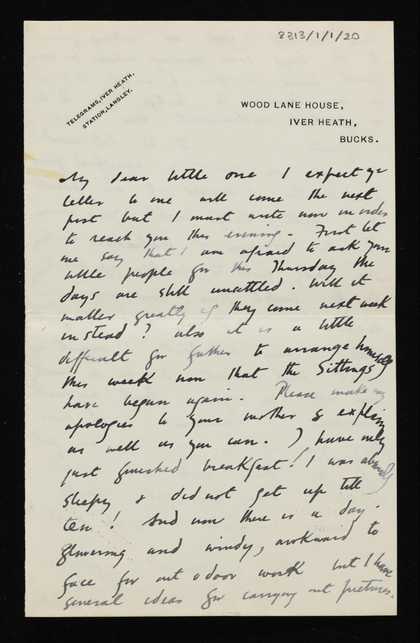 8313/1/1/20
TELEGRAMS, IVER HEATH.
STATION, LANGLEY.
WOOD LANE HOUSE,
IVER HEATH,
BUCKS.
My dear little one I expect yr
letter to me will come the next
post but I must write now in order
to reach you this evening. First let
me say that I am afraid to ask your
little people for this Thursday the
days are still unsettled. Will it
matter greatly if they come next week
instead? also it is a little
difficult for Father to arrange himself
this week now that the Sittings
have begun again. Please make my
apologies to your mother & explain
as well as you can. I have only
just finished breakfast! I was
sleepy & did not get up till
ten! And now there is a day.
glowering and windy, awkward to
face for out o door work but I have
general ideas for carrying out pictures.